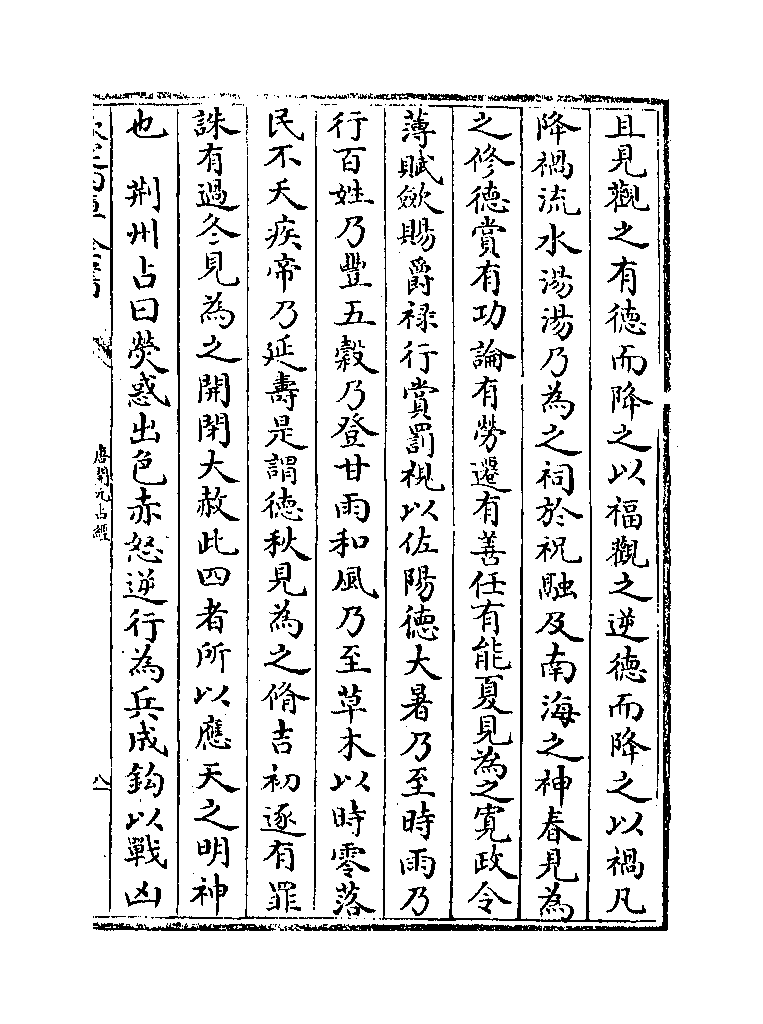 且見觀之有德而降之以福觀之逆德而降之以禍凡
降禍流水湯湯乃為之祠於祝融及南海之神春見為
之修德賞有功論有勞遷有善任有能夏見為之寛政令
薄賦歛賜爵禄行賞罰視以佐陽德大暑乃至時雨乃
行百姓乃豐五穀乃登甘雨和風乃至草木以時零落
民不夭疾帝乃延壽是謂德秋見為之脩吉初逐有罪
誅有過冬見為之開閉大赦此四者所以應天之明神
也　荆州占曰熒惑出色赤怒逆行為兵成鈎以戰凶
唐開元占經
八